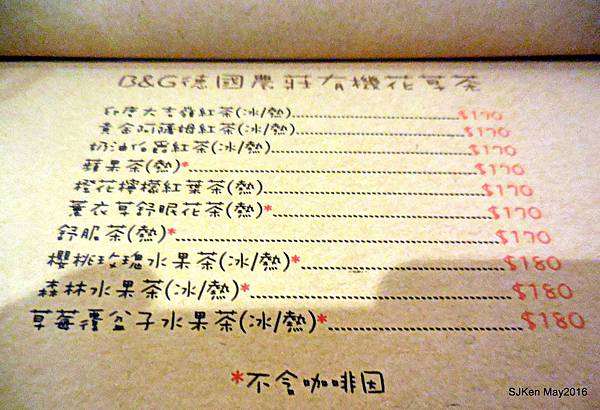 B&G德國農莊有機花草茶
印度大吉嶺紅茶(冰/熱)........................$170
黃金阿薩姆紅茶(冰/熱)........................$170
奶油伯爵紅茶(冰/熱)........................$170
蘋果茶(熱)*........................$170
橙花檸檬紅葉茶(熱)........................$170
薰衣草舒眠花茶(熱)*........................$170
舒服茶(熱)*........................$170
櫻桃玫瑰水果茶(冰/熱)*........................$180
森林水果茶(冰/熱)*........................$180
草莓覆盆子水果茶(冰/熱)*........................$180
*不含咖啡因
SJKen May2016